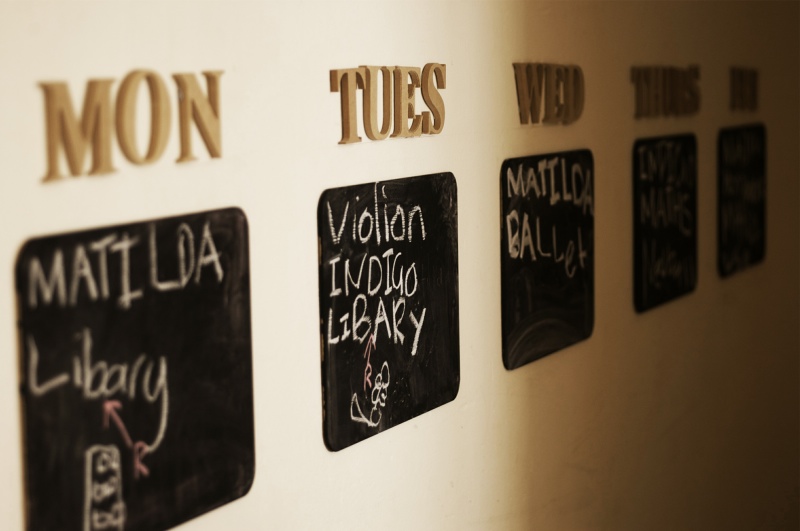 MON
MATILDA
Libary
R
TUES
Violian
INDIGO
LIBARY
R
WED
MATILDA
BALLet
THURS
INDIGO
MATHS
FRI